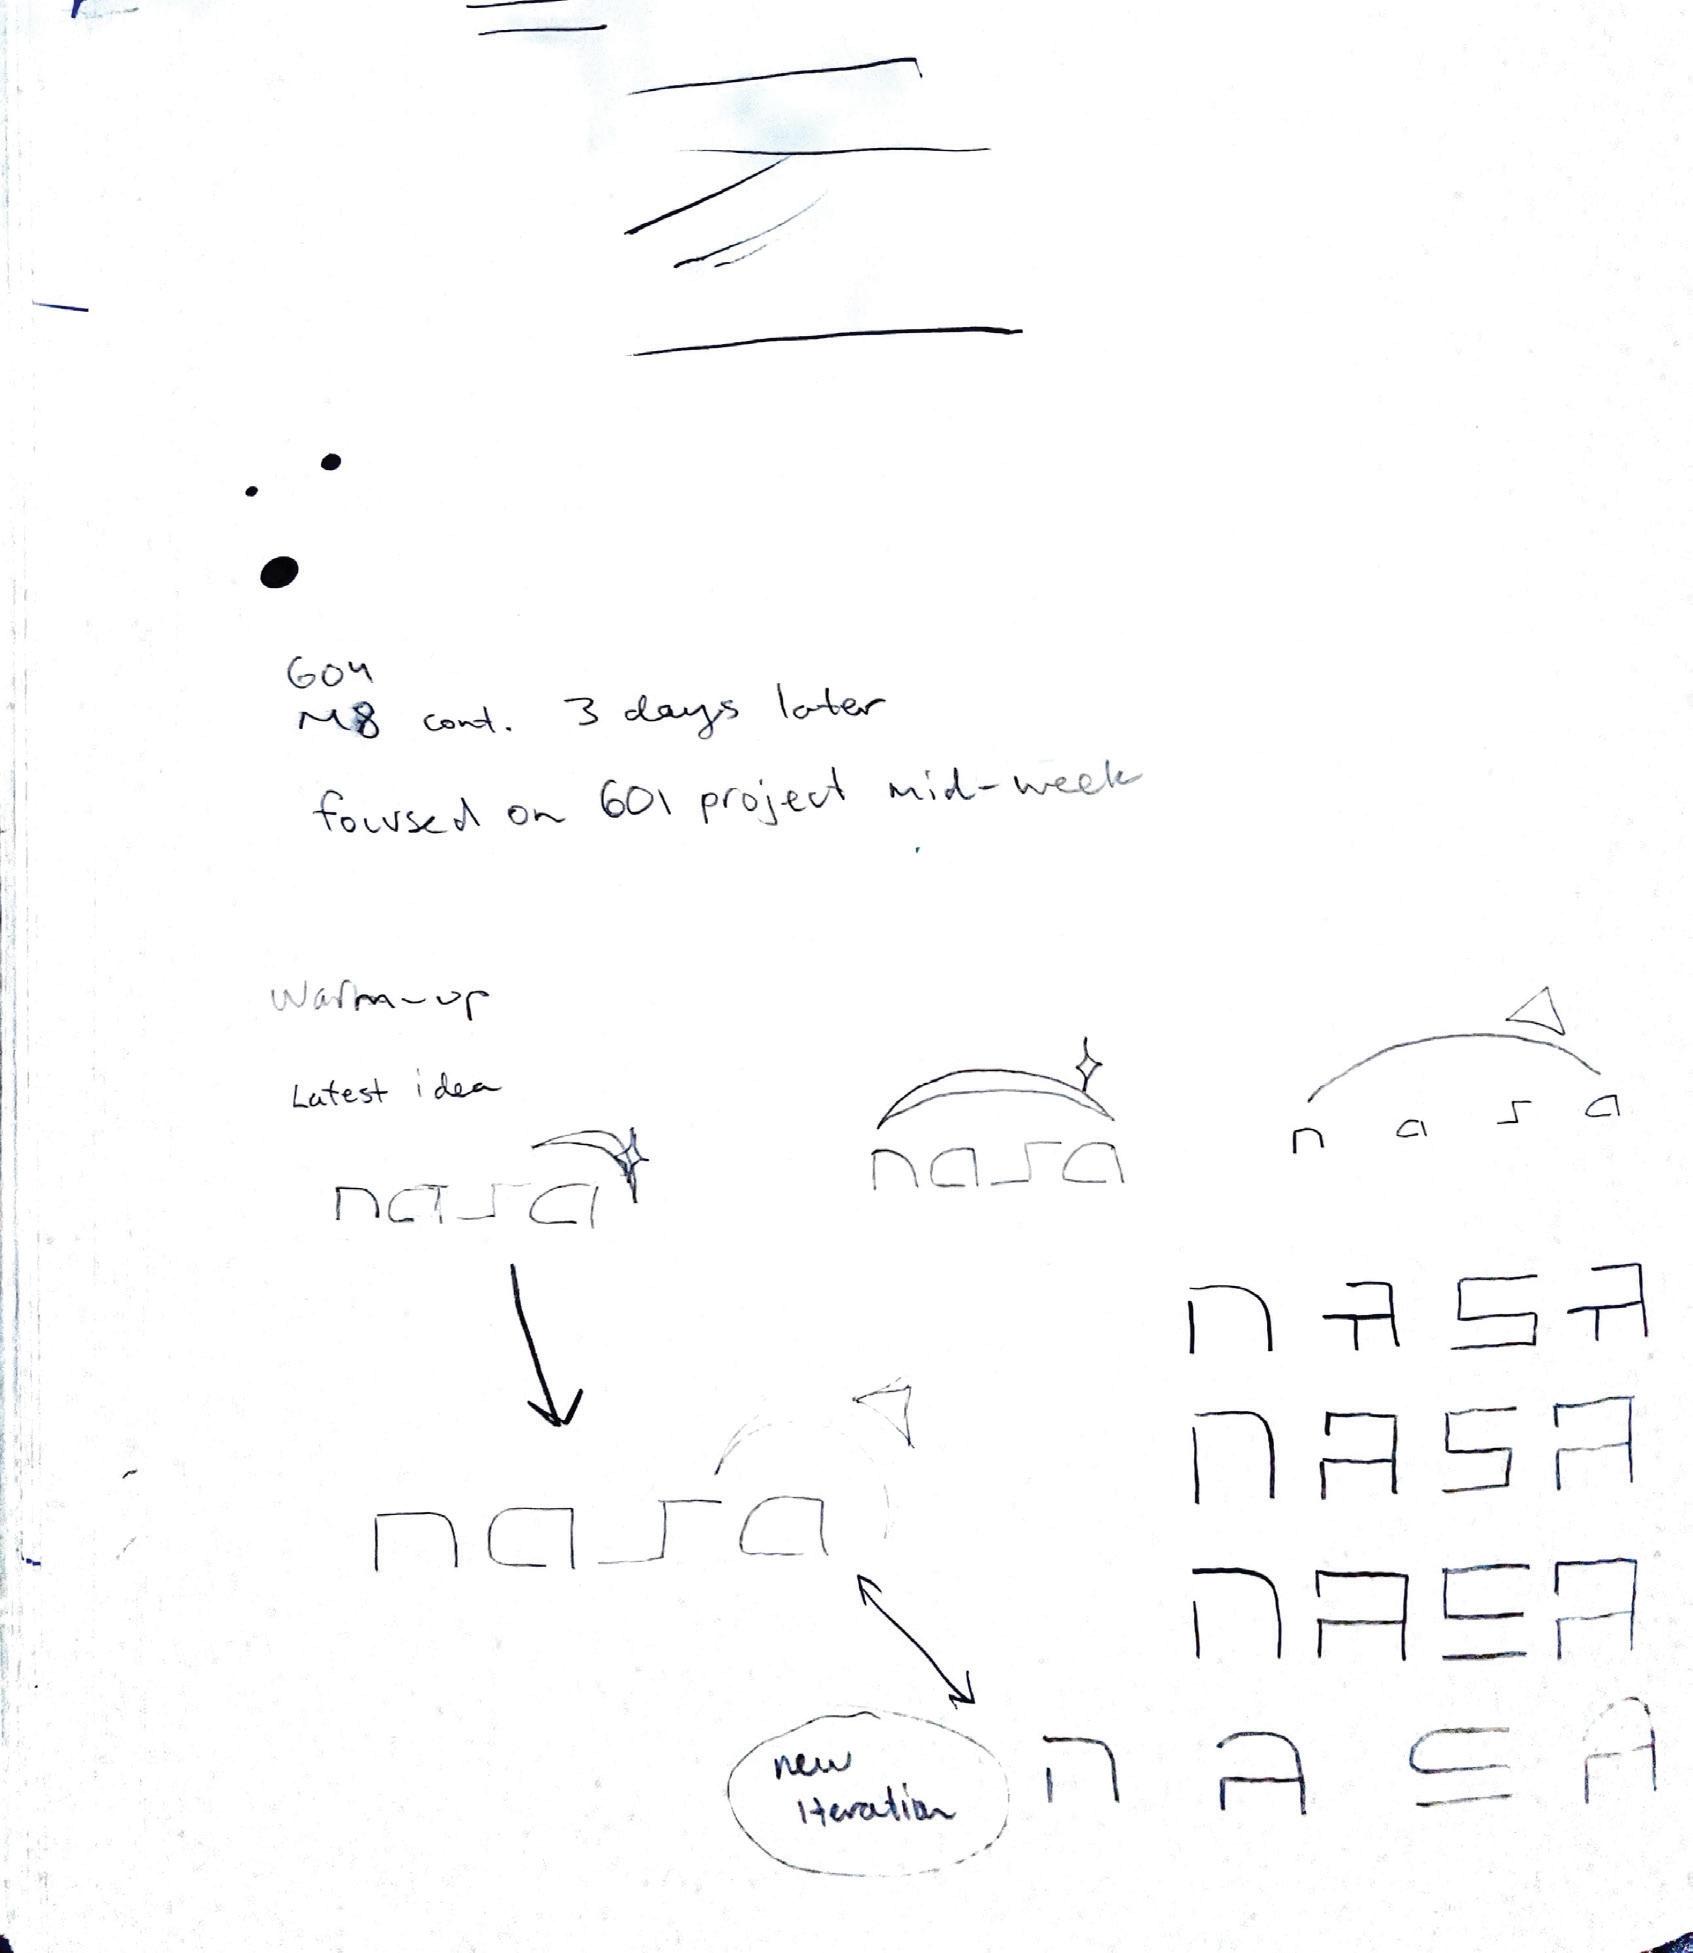 604
M8 cont. 3 days later
focused on 601 project mid-week
Warm-up
Latest idea
nasa
nasa
n a s a
nasa
n A S A
n A S A
n A S A
new
iteration
n A S A